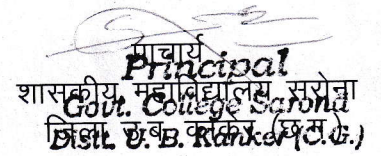 प्राचार्य
Principal
शासकीय महाविद्यालय, सरोना
Govt. College Sarona
जिला उ.ब. कांकेर (छ.ग.)
Distt. U. B. Kanker (C.G.)